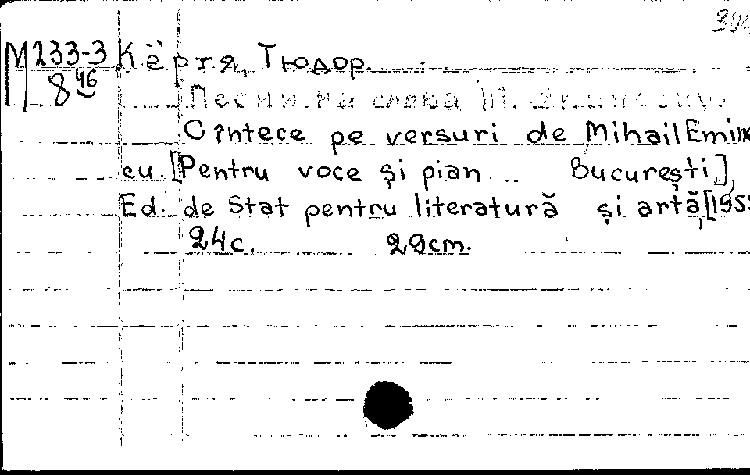 M 233-3
8 46
Кёртя, Тюдор.
Песни на слова М. Эминеску.
Cîntece pe versuri de Mihail Emine
cu. [Pentru voce şi pian... Bucureşti],
Ed. de Stat pentru literatură şi artă, [195
24c. 29cm.